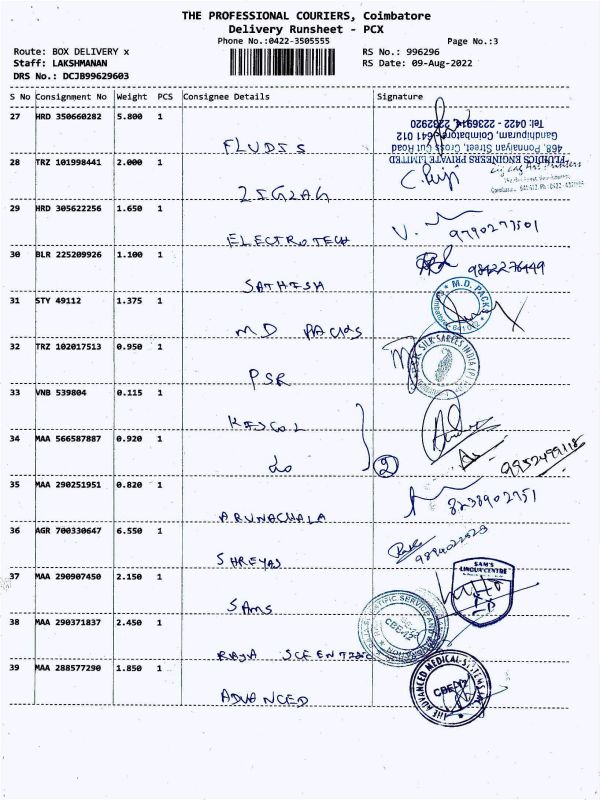 THE PROFESSIONAL COURIERS, Coimbatore
Delivery Runsheet - PCX
Phone No.:0422-3505555
Page No.:3
Route: BOX DELIVERY x
RS No.: 996296
Staff: LAKSHMANAN
RS Date: 09-Aug-2022
DRS No.: DCJB99629603
S No Consignment No Weight PCS Consignee Details Signature
27 HRD 350660282 5.800 1
FLUDIS
FLUIDICS ENGINEERS PRIVATE LIMITED
468, Ponnaiyan Street, Cross Cut Road
Gandhipuram, Coimbatore, 641 012
Tel: 0422 - 2236914, 2232920
28 TRZ 101998441 2.000 1
ZIGZAG
29 HRD 305622256 1.650 1
ELECTROTECH
9790277501
30 BLR 225209926 1.100 1
SATHISH
9842276449
31 STY 49112 1.375 1
MD PACKS
M.D. PACKS
32 TRZ 102017513 0.950 1
PSR
PSR SILK SAREES INDIA (P)
33 VNB 539804 0.115 1
34 MAA 566587887 0.920 1
do
2
9952499118
35 MAA 290251951 0.820 1
ARUNACHALA
8238902951
36 AGR 700330647 6.550 1
SHREYAS
37 MAA 290907450 2.150 1
SAMS
SAM'S
LINGUA CENTRE
38 MAA 290371837 2.450 1
RAJA SCIENTIFIC
39 MAA 288577290 1.850 1
ADVANCED
THE ADVANCED MEDICAL SYSTEMS
CBE-12